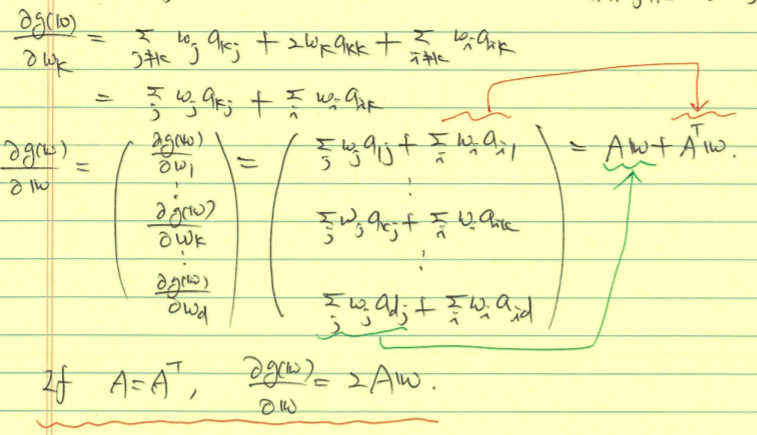 ∂g(𝕨)/∂w_k = Σ_{j≠k} w_j a_{kj} + 2w_k a_{kk} + Σ_{i≠k} w_i a_{ik}
= Σ_j w_j a_{kj} + Σ_i w_i a_{ik}
∂g(𝕨)/∂𝕨 = ( ∂g(𝕨)/∂w_1 ⋮ ∂g(𝕨)/∂w_k ⋮ ∂g(𝕨)/∂w_d ) = ( Σ_j w_j a_{1j} + Σ_i w_i a_{i1} ⋮ Σ_j w_j a_{kj} + Σ_i w_i a_{ik} ⋮ Σ_j w_j a_{dj} + Σ_i w_i a_{id} ) = A𝕨 + A^T𝕨.
If A = A^T, ∂g(𝕨)/∂𝕨 = 2A𝕨.